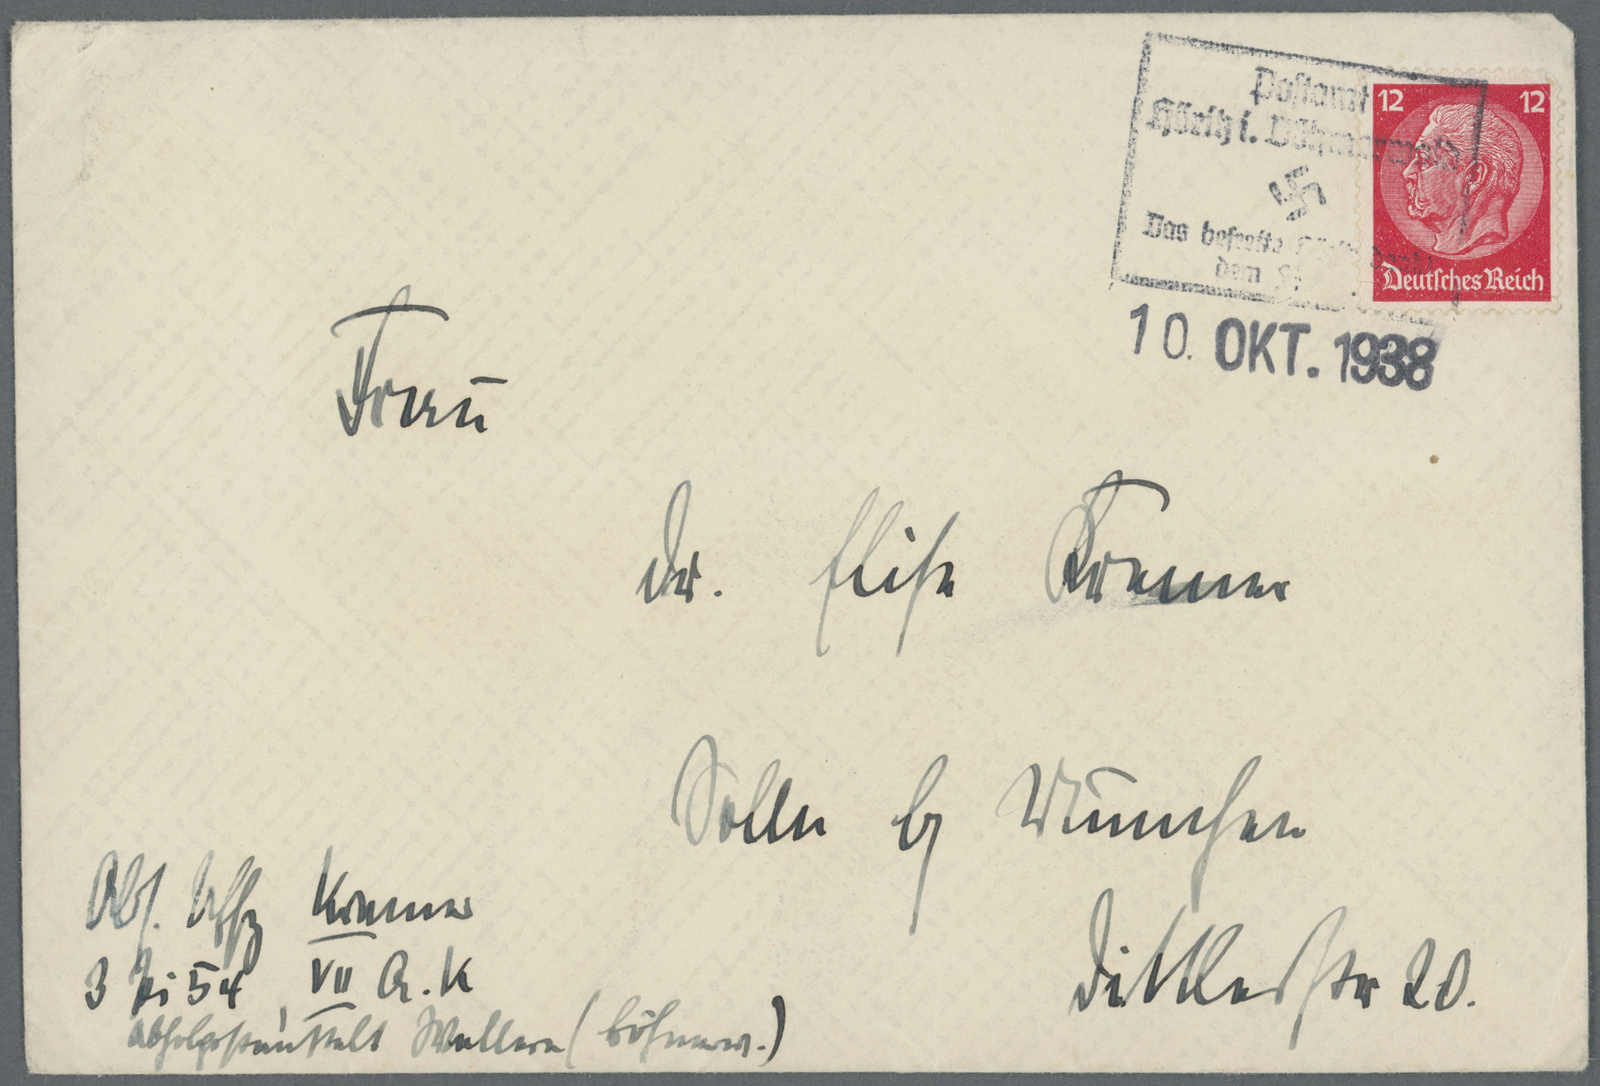 Postamt
Höritz i. Böhmerwald
Das befreite
dem
12 12
Deutsches Reich
10. OKT. 1938
Frau
Dr. Elise Kremer
Solln b/ München
Dittlerstr 20.
Abs. Uffz Kremer
3 Pi 54 VII A.K
Wallern (Böhmerw.)